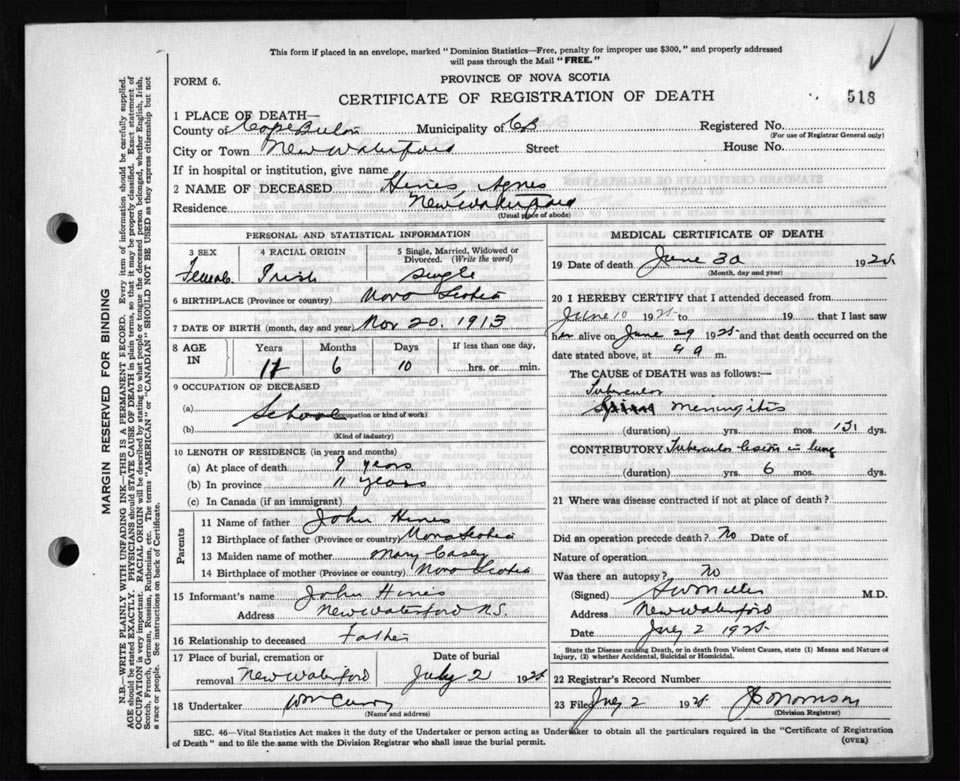 This form if placed in an envelope, marked "Dominion Statistics—Free, penalty for improper use $300," and properly addressed
will pass through the Mail "FREE."
FORM 6.
PROVINCE OF NOVA SCOTIA
CERTIFICATE OF REGISTRATION OF DEATH
518
1 PLACE OF DEATH—
County of Cape Breton Municipality of CB Registered No.
(For use of Registrar General only)
City or Town New Waterford Street House No.
If in hospital or institution, give name
2 NAME OF DECEASED Hines Agnes
Residence New Waterford
(Usual place of abode)
PERSONAL AND STATISTICAL INFORMATION
3 SEX 4 RACIAL ORIGIN 5 Single, Married, Widowed or Divorced. (Write the word)
Female Irish Single
6 BIRTHPLACE (Province or country) Nova Scotia
7 DATE OF BIRTH (month, day and year) Nov 20. 1913
8 AGE IN Years Months Days If less than one day,
6 10 hrs. or min.
9 OCCUPATION OF DECEASED
(a) School
(Occupation or kind of work)
(b)
(Kind of industry)
10 LENGTH OF RESIDENCE (in years and months)
(a) At place of death 9 years
(b) In province 11 years
(c) In Canada (if an immigrant)
Parents
11 Name of father John Hines
12 Birthplace of father (Province or country) Nova Scotia
13 Maiden name of mother Mary Casey
14 Birthplace of mother (Province or country) Nova Scotia
15 Informant's name John Hines
Address New Waterford N.S.
16 Relationship to deceased Father
17 Place of burial, cremation or removal New Waterford Date of burial July 2 1925
18 Undertaker Wm Curry
(Name and address)
MEDICAL CERTIFICATE OF DEATH
19 Date of death June 30 1925
(Month, day and year)
20 I HEREBY CERTIFY that I attended deceased from
June 10 1925 to 19 that I last saw
her alive on June 29 1925 and that death occurred on the
date stated above, at 9 a m.
The CAUSE of DEATH was as follows:—
Tubercular
Meningitis
(duration) yrs. mos. dys.
CONTRIBUTORY Tubercular in lung
(duration) yrs. 6 mos. dys.
21 Where was disease contracted if not at place of death?
Did an operation precede death? No Date of
Nature of operation
Was there an autopsy? No
(Signed) M.D.
Address New Waterford
Date July 2 1925
State the Disease causing Death, or in death from Violent Causes, state (1) Means and Nature of
Injury, (2) whether Accidental, Suicidal or Homicidal.
22 Registrar's Record Number
23 Filed July 2 1925
(Division Registrar)
SEC. 46—Vital Statistics Act makes it the duty of the Undertaker or person acting as Undertaker to obtain all the particulars required in the "Certificate of Registration
of Death" and to file the same with the Division Registrar who shall issue the burial permit.
(OVER)
MARGIN RESERVED FOR BINDING
N.B.—WRITE PLAINLY WITH UNFADING INK—THIS IS A PERMANENT RECORD. Every item of information should be carefully supplied.
AGE should be stated EXACTLY. PHYSICIANS should STATE CAUSE OF DEATH in plain terms, so that it may be properly classified. Exact statement of
OCCUPATION is very important. RACIAL ORIGIN will be described by stating to what people or tongue the deceased person belonged, whether English, Irish,
Scotch, French, German, Russian, Ruthenian, etc. The terms "AMERICAN" or "CANADIAN" SHOULD NOT BE USED as they express citizenship but not
a race or people. See instructions on back of Certificate.